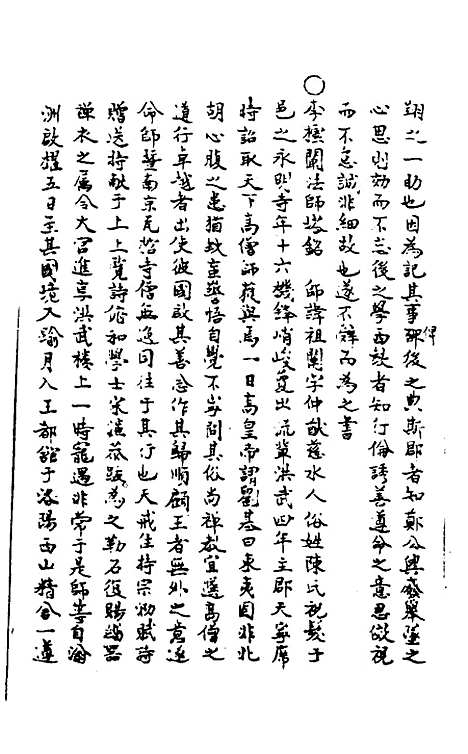 翔之一助也因為記其事俾後之典斯郡者知鄭公興廢舉墜之
心思則効而不忘後之學西放者知行倫誘善尊命之意思儆視
而不怠誠非細故也遂不辭而為之書
○李橒闡法師塔銘 師諱祖闡字仲猷慈水人俗姓陳氏祝髮于
邑之永明寺年十六機鋒峭峻夐出流輩洪武四年主郡天寧席
時詔取天下高僧師蒞與焉一日高皇帝謂劉基曰東夷固非北
胡心腹之患猶蚊䖟警寤自覺不安問其俗尚禪教宜選高僧之
道行卓越者出使彼國啟其善念作其歸順顧王者無外之意遂
命師暨南京瓦官寺僧無逸同往于其行也天戒住持宗泐賦詩
贈送持献于上上覽詩俯和學士宋濂恭跋為之勒石復賜鉢器
禪衣之屬令大官進享洪武樓上一時寵遇非常于是師等自翁
洲啟櫂五日至其國境又踰月入王都舘于洛陽西山精舍一遵